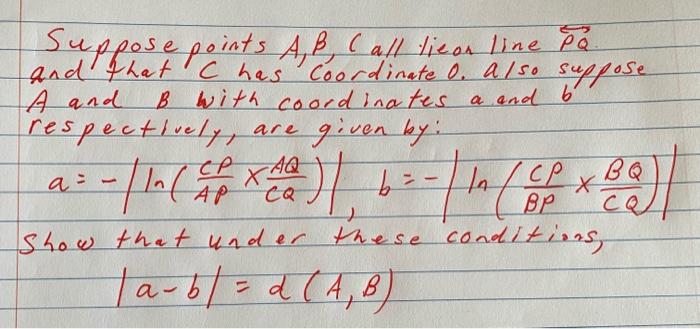 Suppose points A, B, C all lie on line \overleftrightarrow{PQ}
and that C has coordinate 0. also suppose
A and B with coordinates a and b
respectively, are given by:
a = -|ln(\frac{CP}{AP} × \frac{AQ}{CQ})|, b = -|ln(\frac{CP}{BP} × \frac{BQ}{CQ})|
Show that under these conditions,
|a-b| = d(A,B)